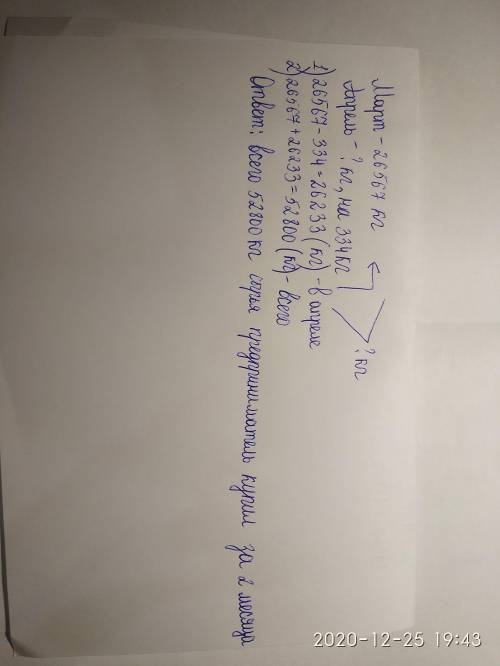 Март - 26567 кг
? кг
Апрель - ? кг, на 334 кг
1) 26567 - 334 = 26233 (кг) - в апреле
2) 26567 + 26233 = 52800 (кг) - всего
Ответ: всего 52800 кг сырья предприниматель купил за 2 месяца
2020-12-25 19:43